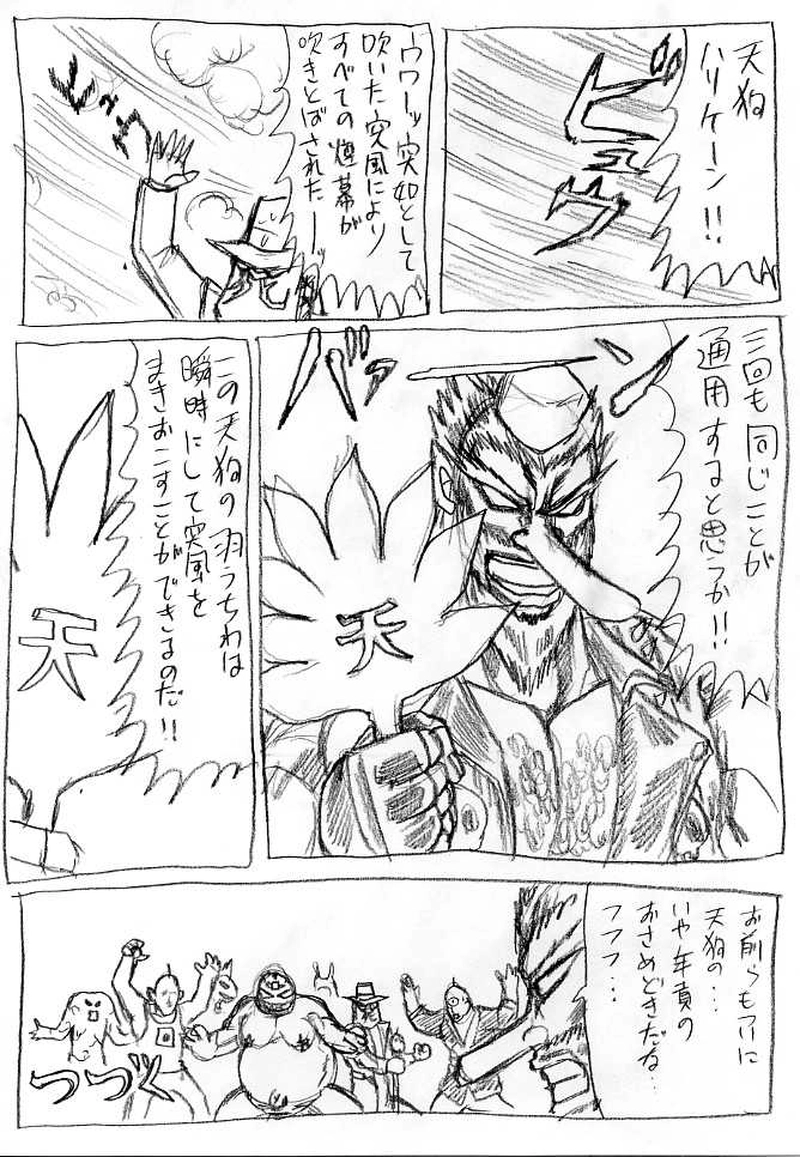 天狗
ハリケーン!!
ビュウ
ウワーッ突如として
吹いた突風により
すべての煙幕が
吹きとばされたー
ビュウ
三回も同じことが
通用すると思うか!!
バァーン
天
この天狗の羽うちわは
瞬時にして突風を
まきおこすことができるのだ!!
天
お前らもついに
天狗の…
いや年貢の
おさめどきだな…
フフフ…